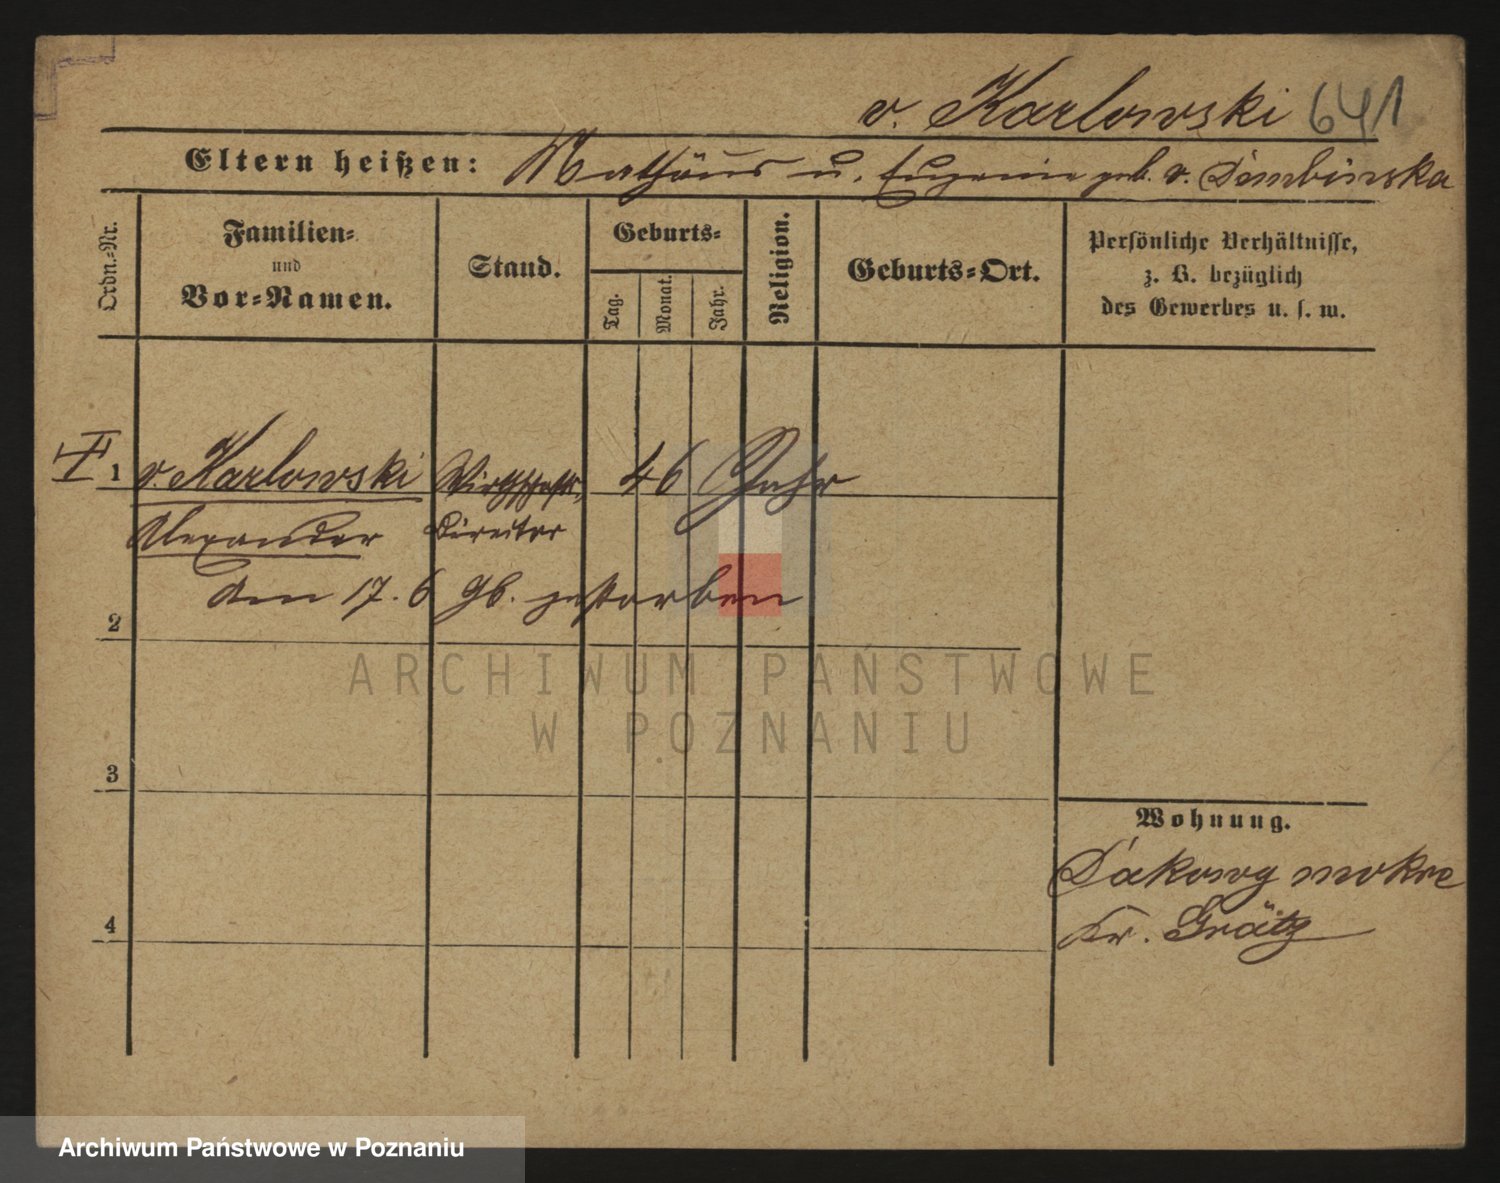 v. Karlowski 641
Eltern heißen: Mathäus u. Eugenie geb. v. Dembinska
Ordn.-Nr.
Familien-
und
Vor-Namen.
Stand.
Geburts-
Tag.
Monat.
Jahr.
Religion.
Geburts-Ort.
Persönliche Verhältnisse,
z. B. bezüglich
des Gewerbes u. s. w.
1 v. Karlowski Wirthschafts- 46 Jahr
Alexander Director
den 17. 6 96. gestorben
2
3
4
Wohnung.
Dakowy mokre
Kr. Grätz
ARCHIWUM PAŃSTWOWE
W POZNANIU
Archiwum Państwowe w Poznaniu